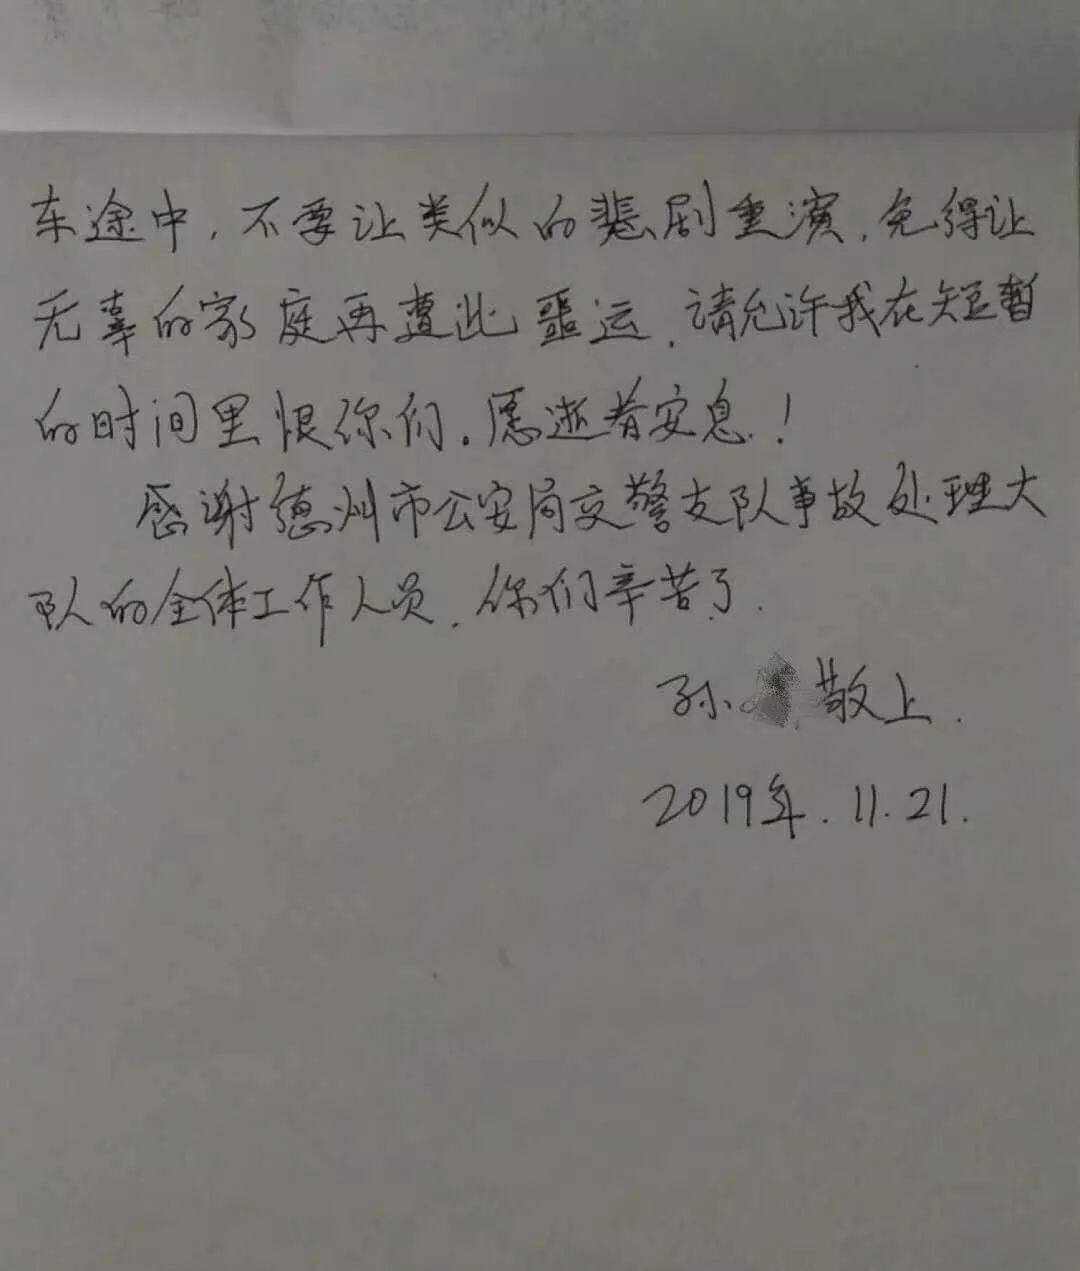 车途中，不要让类似的悲剧重演，免得让
无辜的家庭再遭此噩运，请允许我在短暂
的时间里恨你们。愿逝者安息！
感谢德州市公安局交警支队事故处理大
队的全体工作人员，你们辛苦了.
孙 敬上.
2019年.11.21.